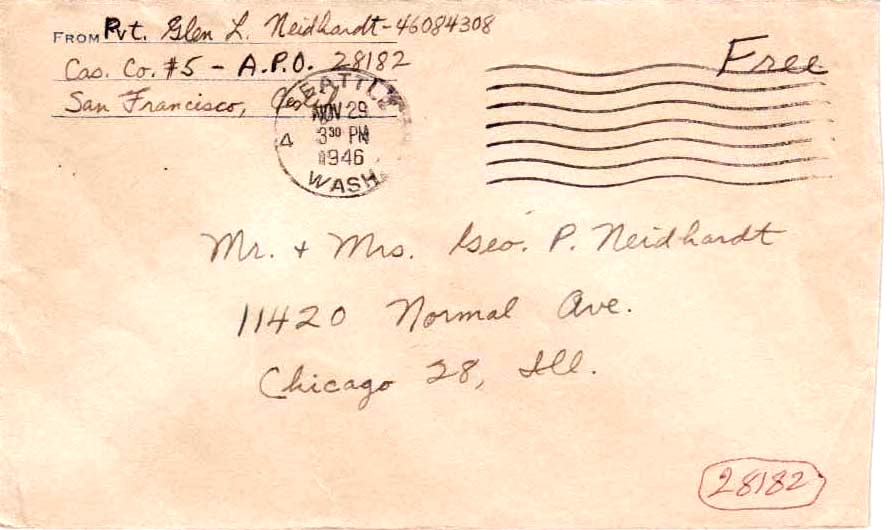 FROM Pvt. Glen L. Neidhardt - 46084308
Cas. Co. #5 - A.P.O. 28182
San Francisco, Calif.
Free
SEATTLE
NOV 29
3 30 PM
1946
4
WASH.
Mr. + Mrs. Geo. P. Neidhardt
11420 Normal Ave.
Chicago 28, Ill.
28182